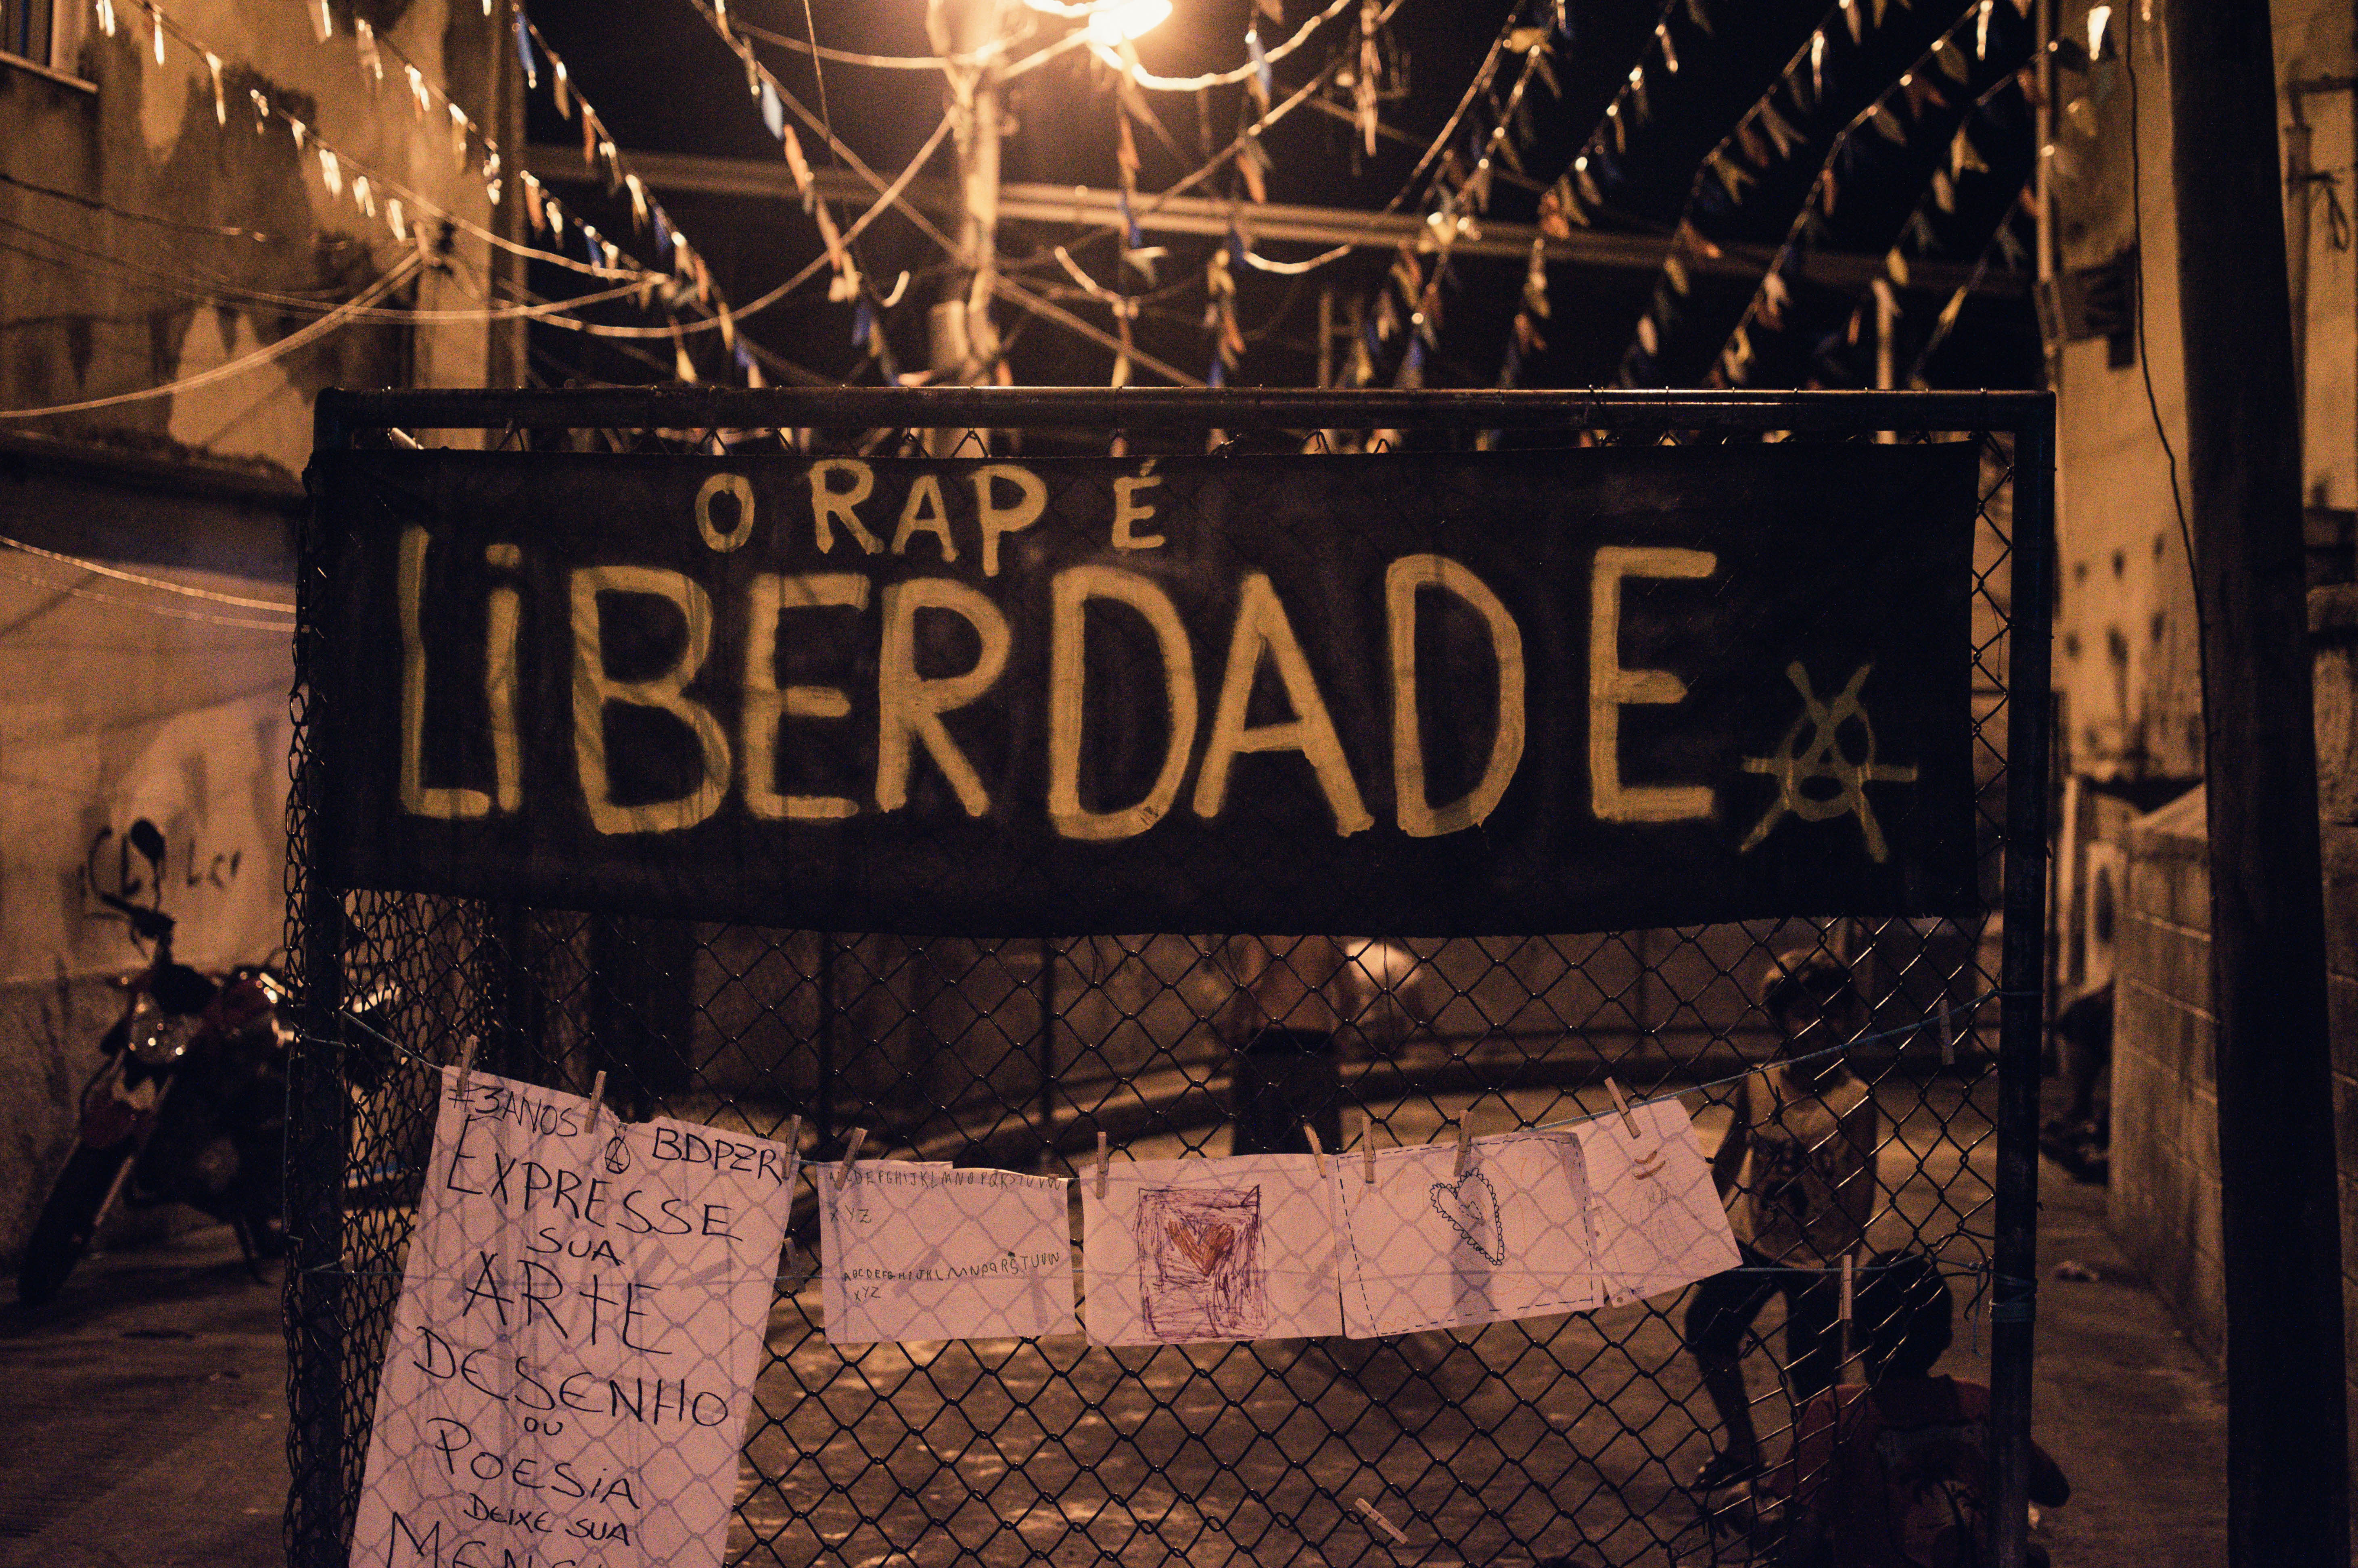 O RAP É
LiBERDADE
#3ANOS BDPZR
EXPRESSE
SUA
ARTE
DESENHO
OU
POESiA
DEIXE SUA
ABCDEFGHIJKLMNOPQRSTUVW
XYZ
ABCDEFGHIJKLMNOPQRSTUVW
XYZ